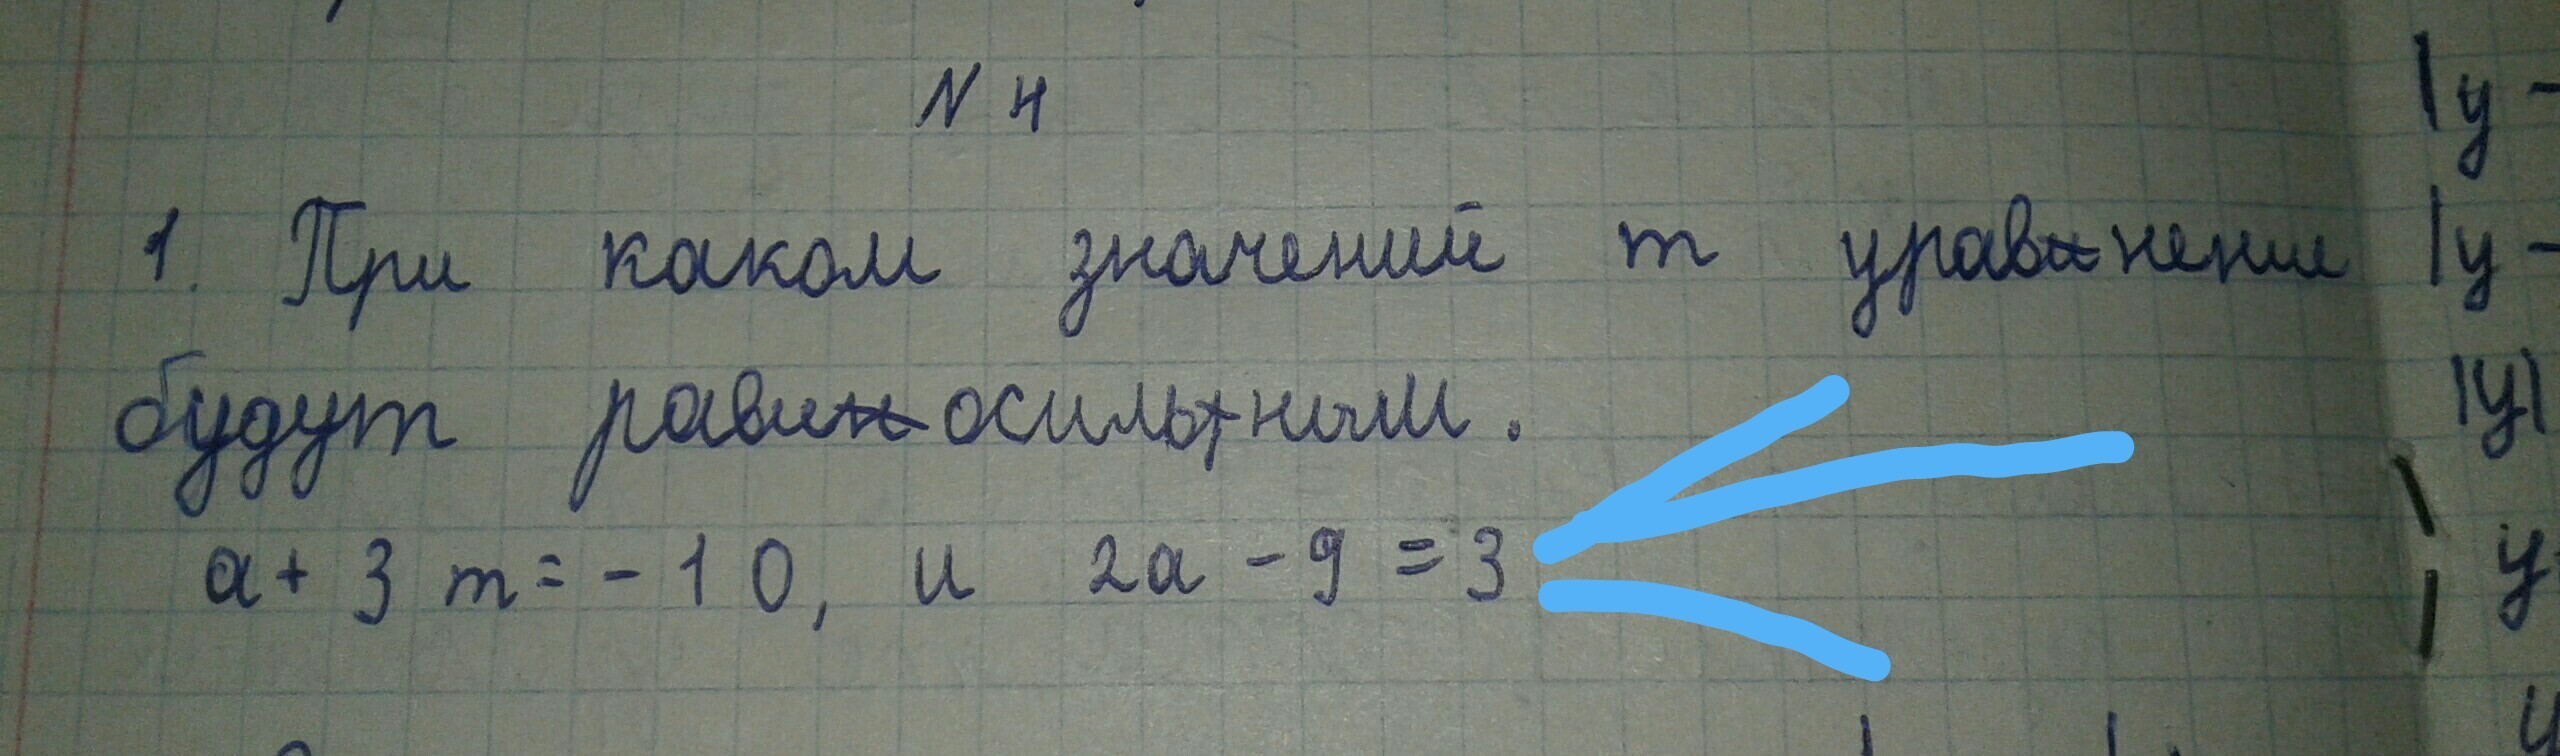 N 4
1. При каком значений m уравнение
будут равносильными.
a + 3 m = - 1 0, и 2a - 9 = 3
|y -
|y -
|y|
y